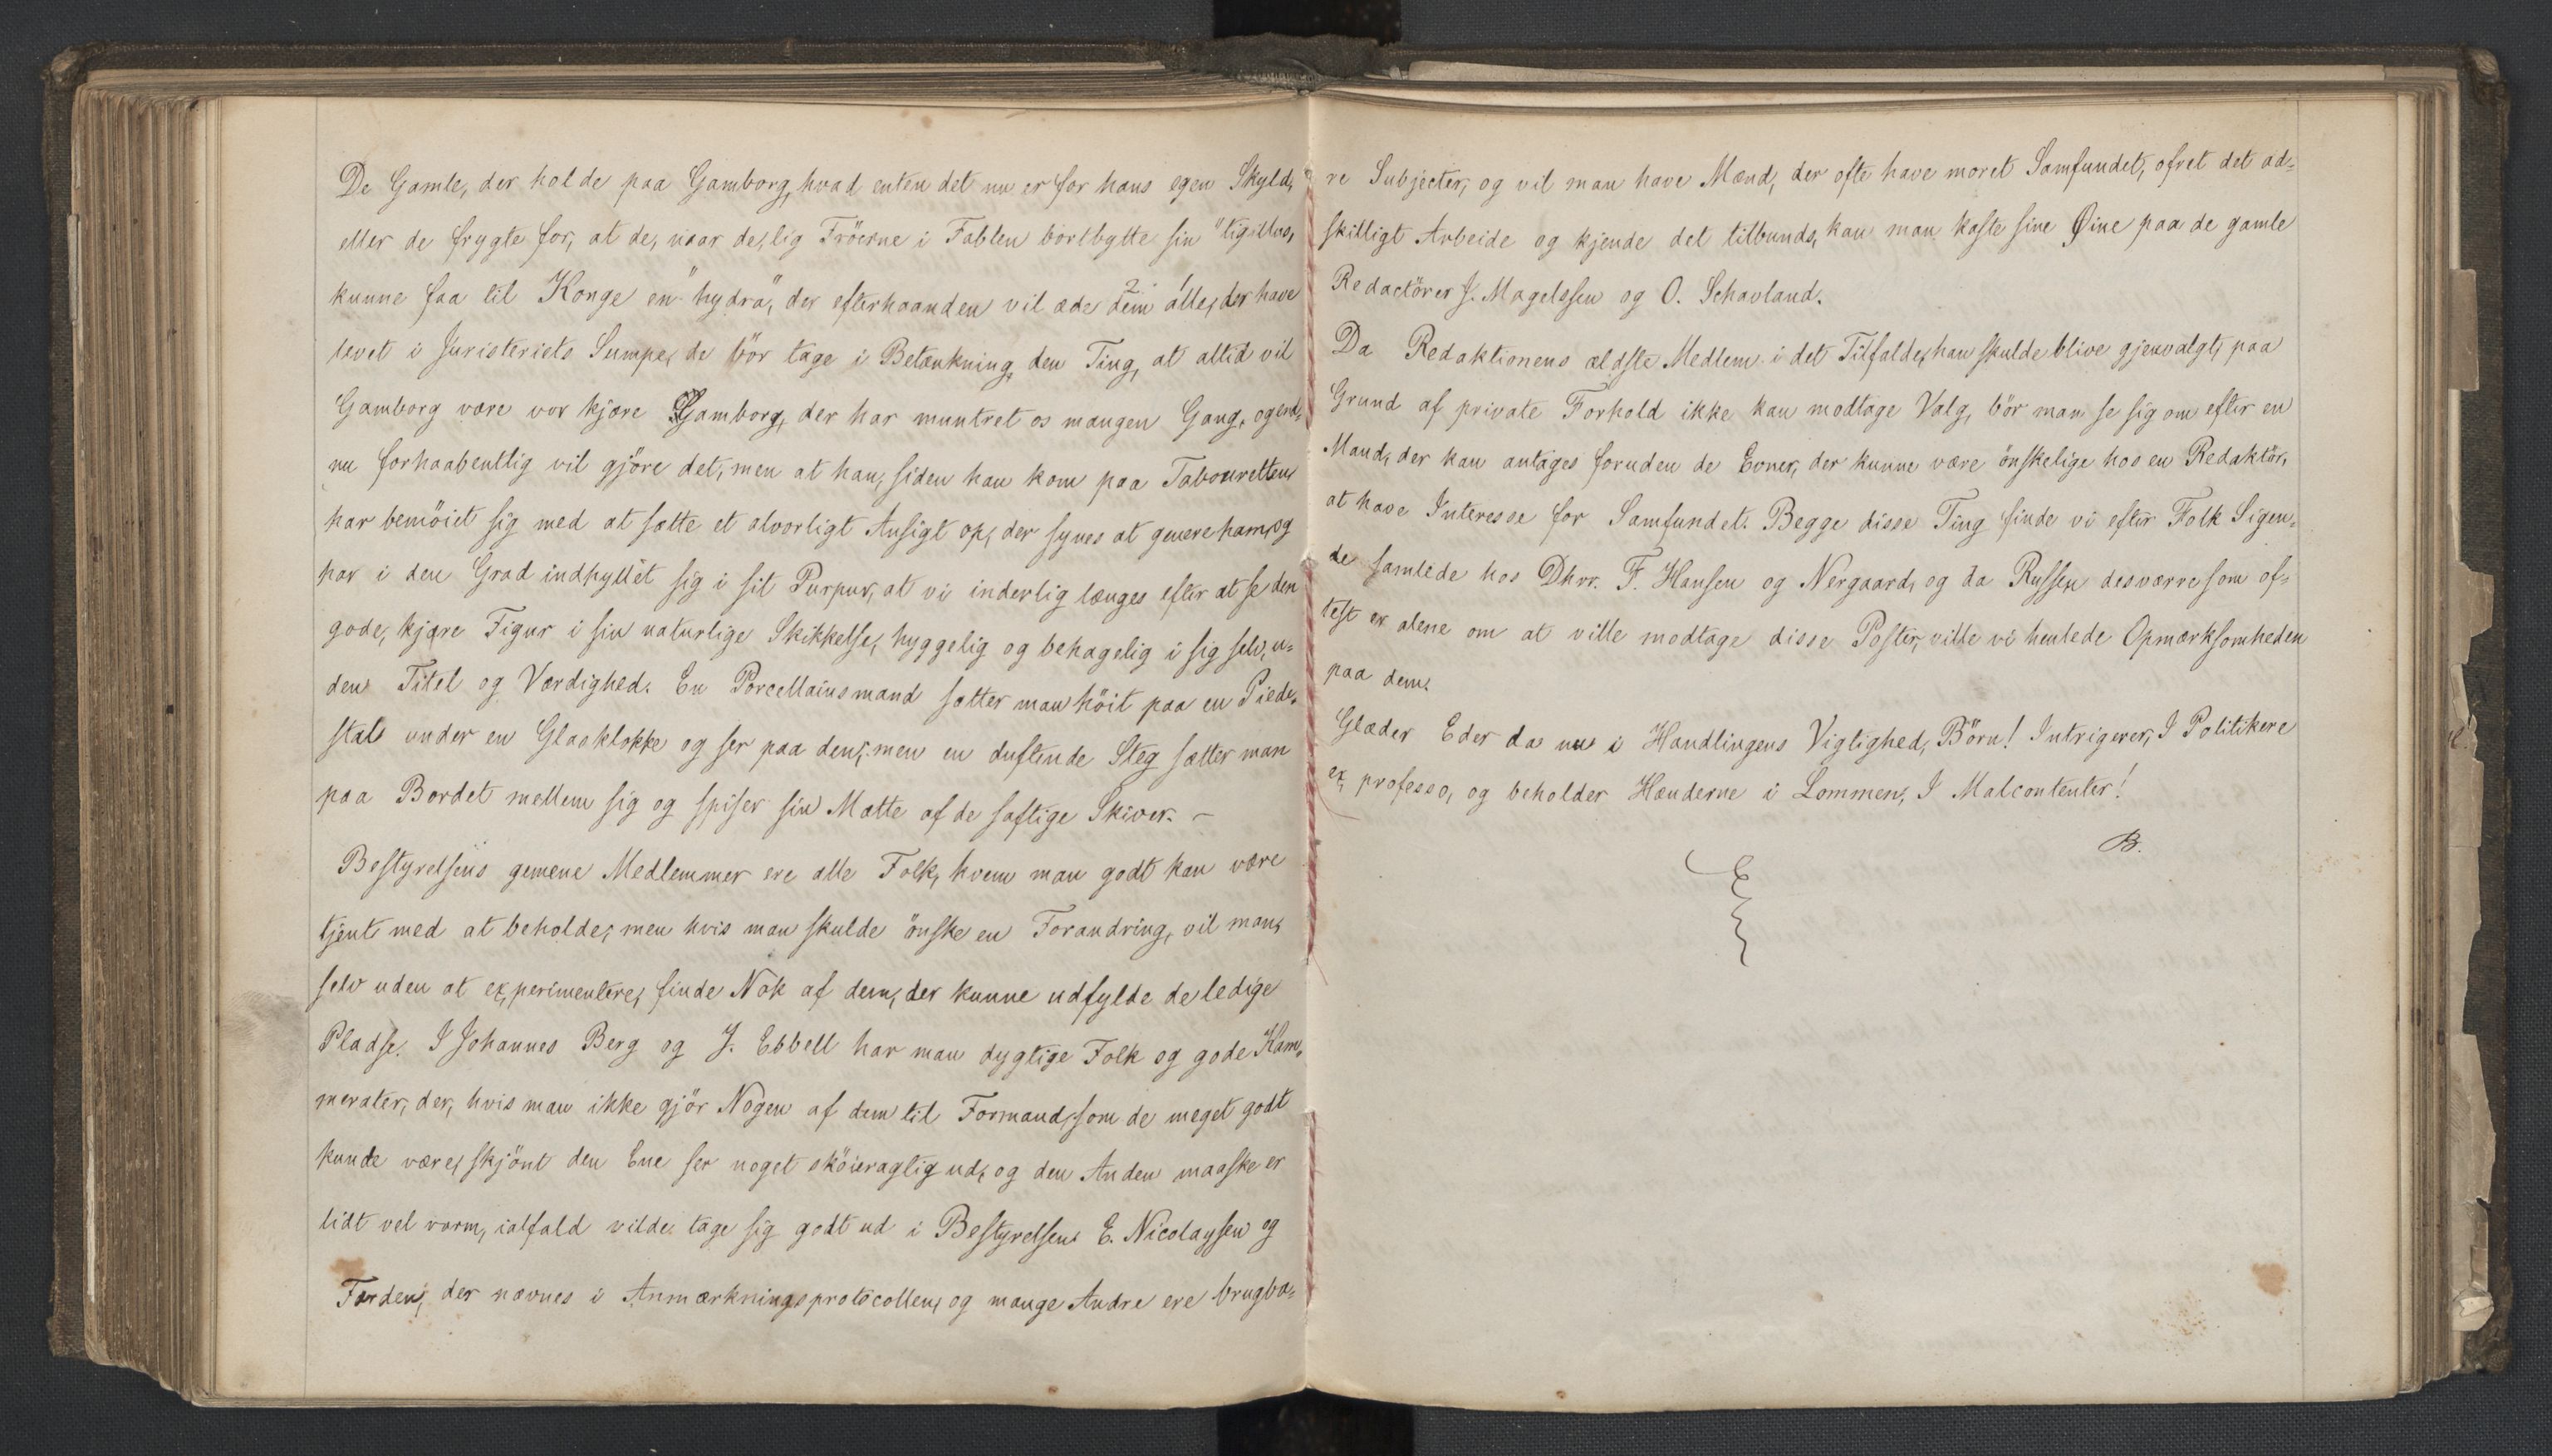 De Gamle, der holde paa Gamborg, hvad enten det nu er for hans egen Skyld,
eller de frygte for, at de, naar de, lig Fröerne i Fablen bortbytte sin "tigillus,
kunne faa til Konge en "hydra", der efterhaanden vil æde dem alle, der have
levet i Juristeriets Sumpe, de bör tage i Betænkning den Ting, at altid vil
Gamborg være vor kjære Gamborg, der har muntret os mangen Gang, og end-
nu forhaabentlig vil gjöre det, men at han, siden han kom paa Tabouretten
har bemöiet sig med at sætte et alvorligt Ansigt op, der synes at genere ham, og
har i den Grad indhyllet sig i sit Purpur, at vi inderlig længes efter at se den
gode, kjære Figur i sin naturlige Skikkelse, hyggelig og behagelig i sig selv, u-
den Titel og Værdighed. En Porcellainsmand sætter man höit paa en Piede-
stal under en Glasklokke og ser paa den; men en duftende Steg sætter man
paa Bordet mellem sig og spiser sin Mætte af de saftige Skiver. –
Bestyrelsens gemene Medlemmer ere alle Folk, hvem man godt kan være
tjent med at beholde; men hvis man skulde önske en Forandring, vil man,
selv uden at experimentere, finde Nok af dem, der kunne udfylde de ledige
Pladse. I Johannes Berg og J. Ebbell har man dygtige Folk og gode Kam-
merater, der, hvis man ikke gjör Nogen af dem til Formand, som de meget godt
kunde være, skjönt den Ene ser noget sköieraglig ud, og den Anden maaske er
lidt vel varm, ialfald vilde tage sig godt ud i Bestyrelsen. E. Nicolaysen og
Færden, der nævnes i Anmærkningsprotocollen, og mange Andre ere brugba-
re Subjecter, og vil man have Mænd, der ofte have moret Samfundet, ofret det ad-
skilligt Arbeide og kjende det tilbunds, kan man kaste sine Øine paa de gamle
Redactörer J. Magelssen og O. Schavland.
Da Redaktionens ældste Medlem i det Tilfælde, han skulde blive gjenvalgt, paa
Grund af private Forhold ikke kan modtage Valg, bör man se sig om efter en
Mand, der kan antages foruden de Evner, der kunne være önskelige hos en Redaktör,
at have Interesse for Samfundet. Begge disse Ting finde vi efter Folk Sigen-
de samlede hos Dhrr. F. Hansen og Nergaard, og da Russen desværre som of-
test er alene om at ville modtage disse Poster, ville vi henlede Opmærksomheden
paa dem.
Glæder Eder da nu i Handlingens Vigtighed, Börn! Intrigerer, I Politikere
ex professo, og beholder Hænderne i Lommen, I Malcontenter!
B.